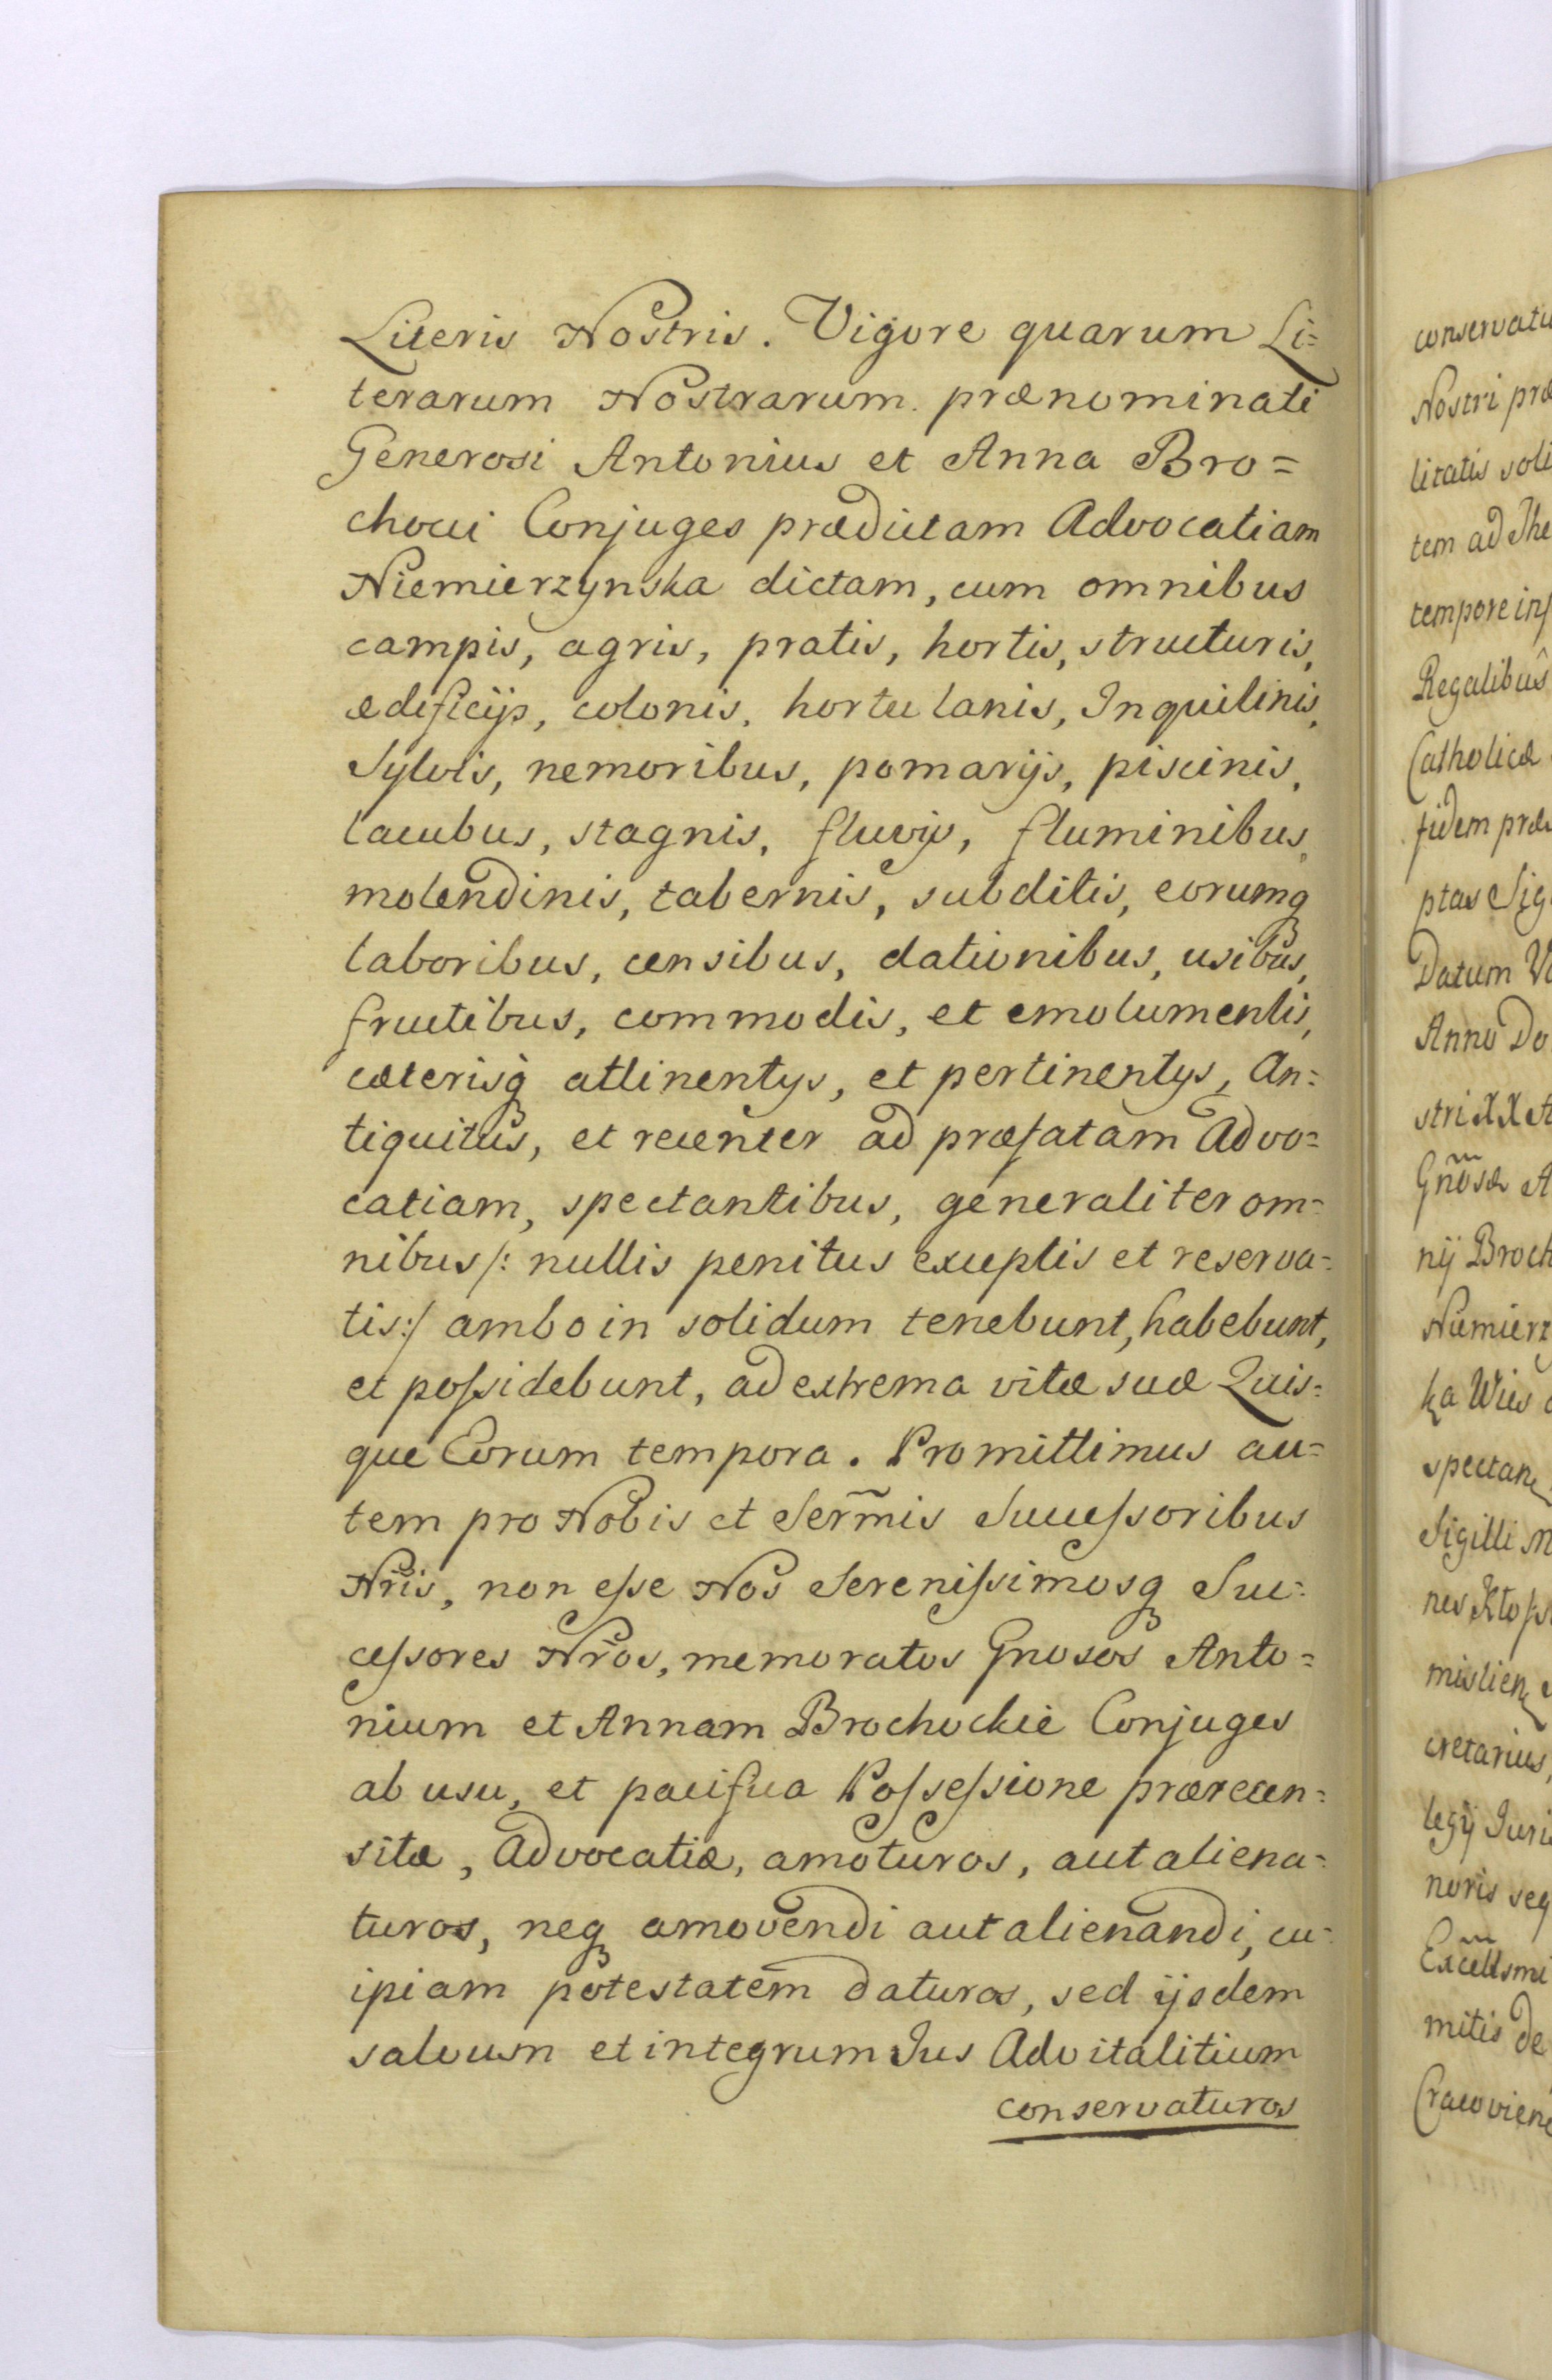 Literis Nostris. Vigore quarum Li=
terarum Nostrarum prænominati
Generosi Antonius et Anna Bro=
chocci Conjuges prædictam Advocatiam
Niemierzynska dictam, cum omnibus
campis, agris, pratis, hortis, structuris,
ædificijs, colonis, hortulanis, Inquilinis,
Sylvis, nemoribus, pomarijs, piscinis,
lacubus, stagnis, fluvijs, fluminibus,
molendinis, tabernis, subditis, eorumq
laboribus, censibus, dationibus, usibus,
fructibus, commodis, et emolumentis,
cæterisq attinentijs, et pertinentijs, An=
tiquitus, et recenter ad præfatam Advo=
catiam, spectantibus, generaliter om=
nibus /: nullis penitus exceptis et reserva=
tis :/ ambo in solidum tenebunt, habebunt,
et possidebunt, ad extrema vitæ suæ Quis=
que Eorum tempora. Promittimus au=
tem pro Nobis et Serm̃is Successoribus
Nr̃is, non esse Nos Serenissimosq Suc=
cessores Nr̃os, memoratos Gnosos Anto=
nium et Annam Brochockie Conjuges
ab usu, et pacifica Possessione prærecen=
sitæ, Advocatiæ, amoturos, aut aliena=
turos, neq amovendi aut alienandi, cu=
ipiam potestatem daturos, sed ijsdem
salvum et integrum Jus Advitalitium
conservaturos
conservatu
Nostri præ
litatis soli
tem ad The
tempore ins
Regalibus
Catholicæ
fidem præ
ptas Sig
Datum Va
Anno Do
stri XX A
Gñosæ A
nij Broch
Niemierz
ka Wies
spectan
Sigilli M
nes Kloss
mislien
cretarius,
legij Juri
noris seq
Excell̃smi
mitis de
Cracovien